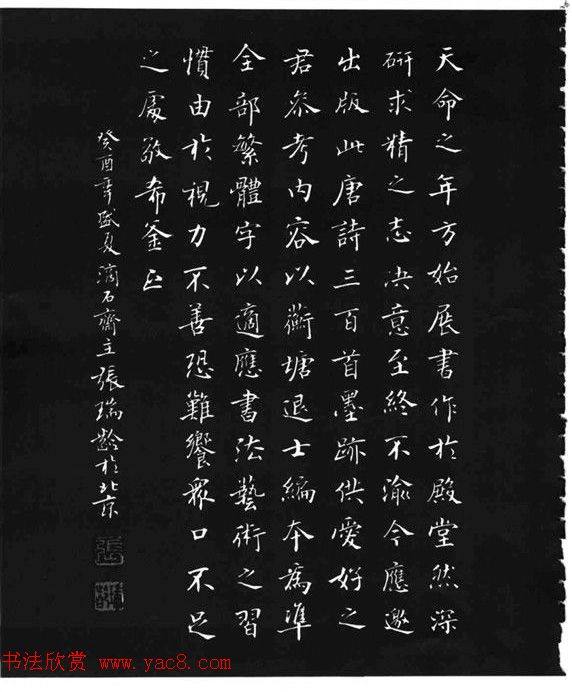 天命之年方始展書作於殿堂然深
研求精之志决意至終不渝今應邀
出版此唐詩三百首墨跡供愛好之
君叅考内容以蘅塘退士編本為準
全部繁體字以適應書法藝術之習
慣由於視力不善恐難饗眾口不足
之處敬希釜正
癸酉年盛夏滴石齋主張瑞齡於北京
书法欣赏 www.yac8.com